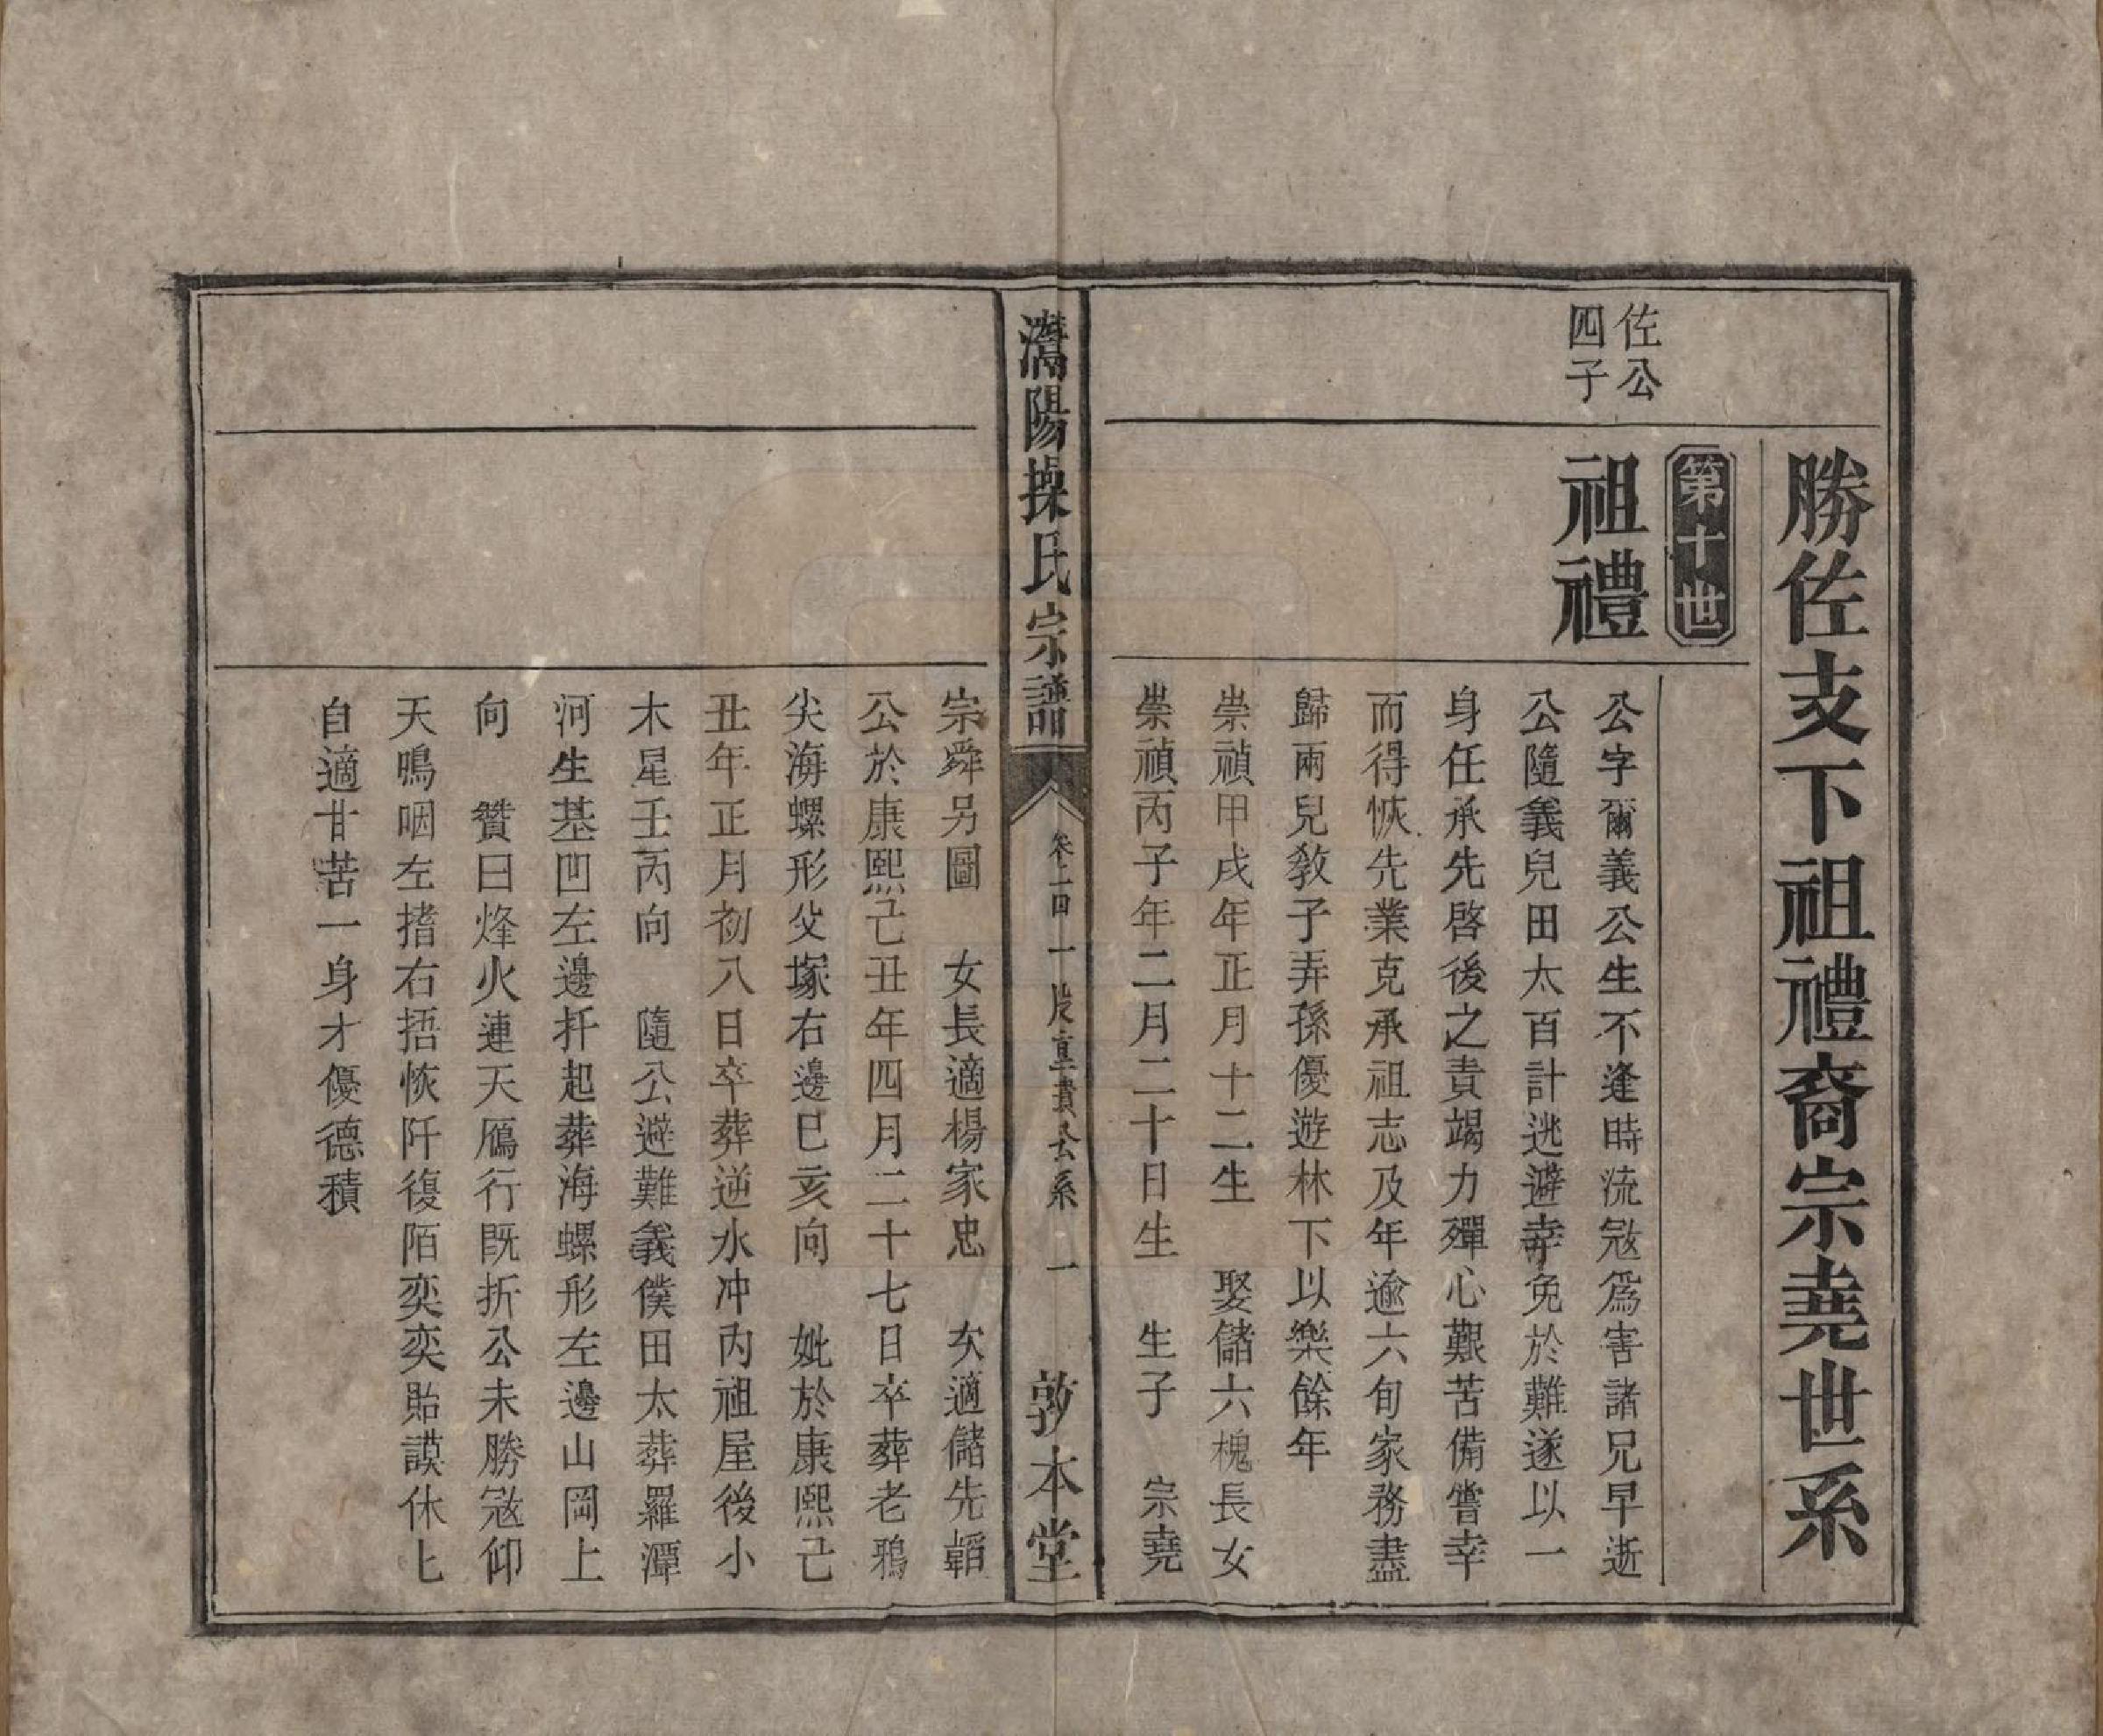 勝佐支下祖禮裔宗堯世系
第十世
佐公
四子
祖禮
公字爾義公生不逢時流冦為害諸兄早逝
公隨義兒田太百計逃避幸免於難遂以一
身任承先啓後之責竭力殫心艱苦備嘗幸
而得恢先業克承祖志及年逾六旬家務盡
歸兩兒敎子弄孫優遊林下以樂餘年
崇禎甲戌年正月十二生　娶儲六槐長女
崇禎丙子年二月二十日生　生子　宗堯
灊陽操氏宗譜
卷二四　一股真貴公系　一
敦本堂
宗舜另圖　女長適楊家忠　次適儲先韜
公於康熙己丑年四月二十七日卒葬老鴉
尖海螺形父塚右邊巳亥向　妣於康熙己
丑年正月初八日卒葬逆水冲內祖屋後小
木星壬丙向　隨公避難義僕田太葬羅潭
河生基凹左邊扦起葬海螺形左邊山岡上
向　贊曰烽火連天鴈行既折公未勝冦仰
天鳴咽左揩右捂恢阡復陌奕奕貽謨休匕
自適甘苦一身才優德積